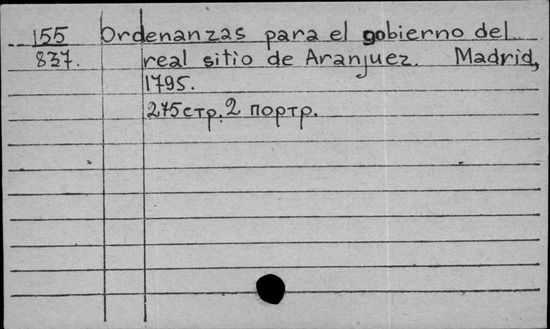 155 Ordenanzas para el gobierno del
837. real sitio de Aranjuez. Madrid,
1795.
275стр., 2 портр.